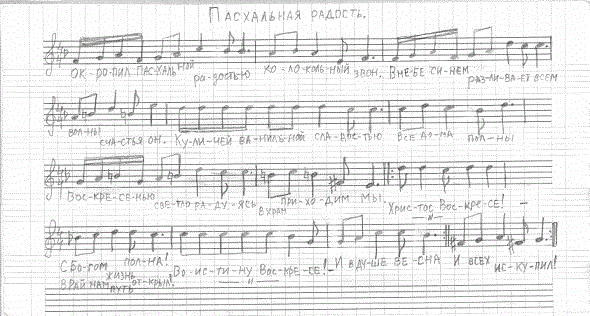 ПАСХАЛЬНАЯ РАДОСТЬ.
ОК-РО-ПИЛ ПАС-ХАЛЬ-НОЙ РА-ДОСТЬЮ КО-ЛО-КОЛЬ-НЫЙ ЗВОН. В НЕ-БЕ СИ-НЕМ РАЗ-ЛИ-ВА-ЕТ ВСЕМ
ВОЛ-НЫ СЧА-СТЬЯ ОН. КУ-ЛИ-ЧЕЙ ВА-НИЛЬ-НОЙ СЛА-ДОСТЬЮ ВСЕ ДО-МА ПОЛ-НЫ
ВОС-КРЕ-СЕ-НЬЮ СВЕТ-ЛО РА-ДУ-ЯСЬ В ХРАМ ПРИ-ХО-ДИМ МЫ. ХРИС-ТОС ВОС-КРЕ-СЕ! –
– " –
С БО-ГОМ ЖИЗНЬ ПОЛ-НА! ВО-ИС-ТИ-НУ ВОС-КРЕ-СЕ! – И В ДУ-ШЕ ВЕ-СНА И ВСЕХ ИС-КУ-ПИЛ!
В РАЙ НАМ ПУТЬ ОТ-КРЫЛ! – " –